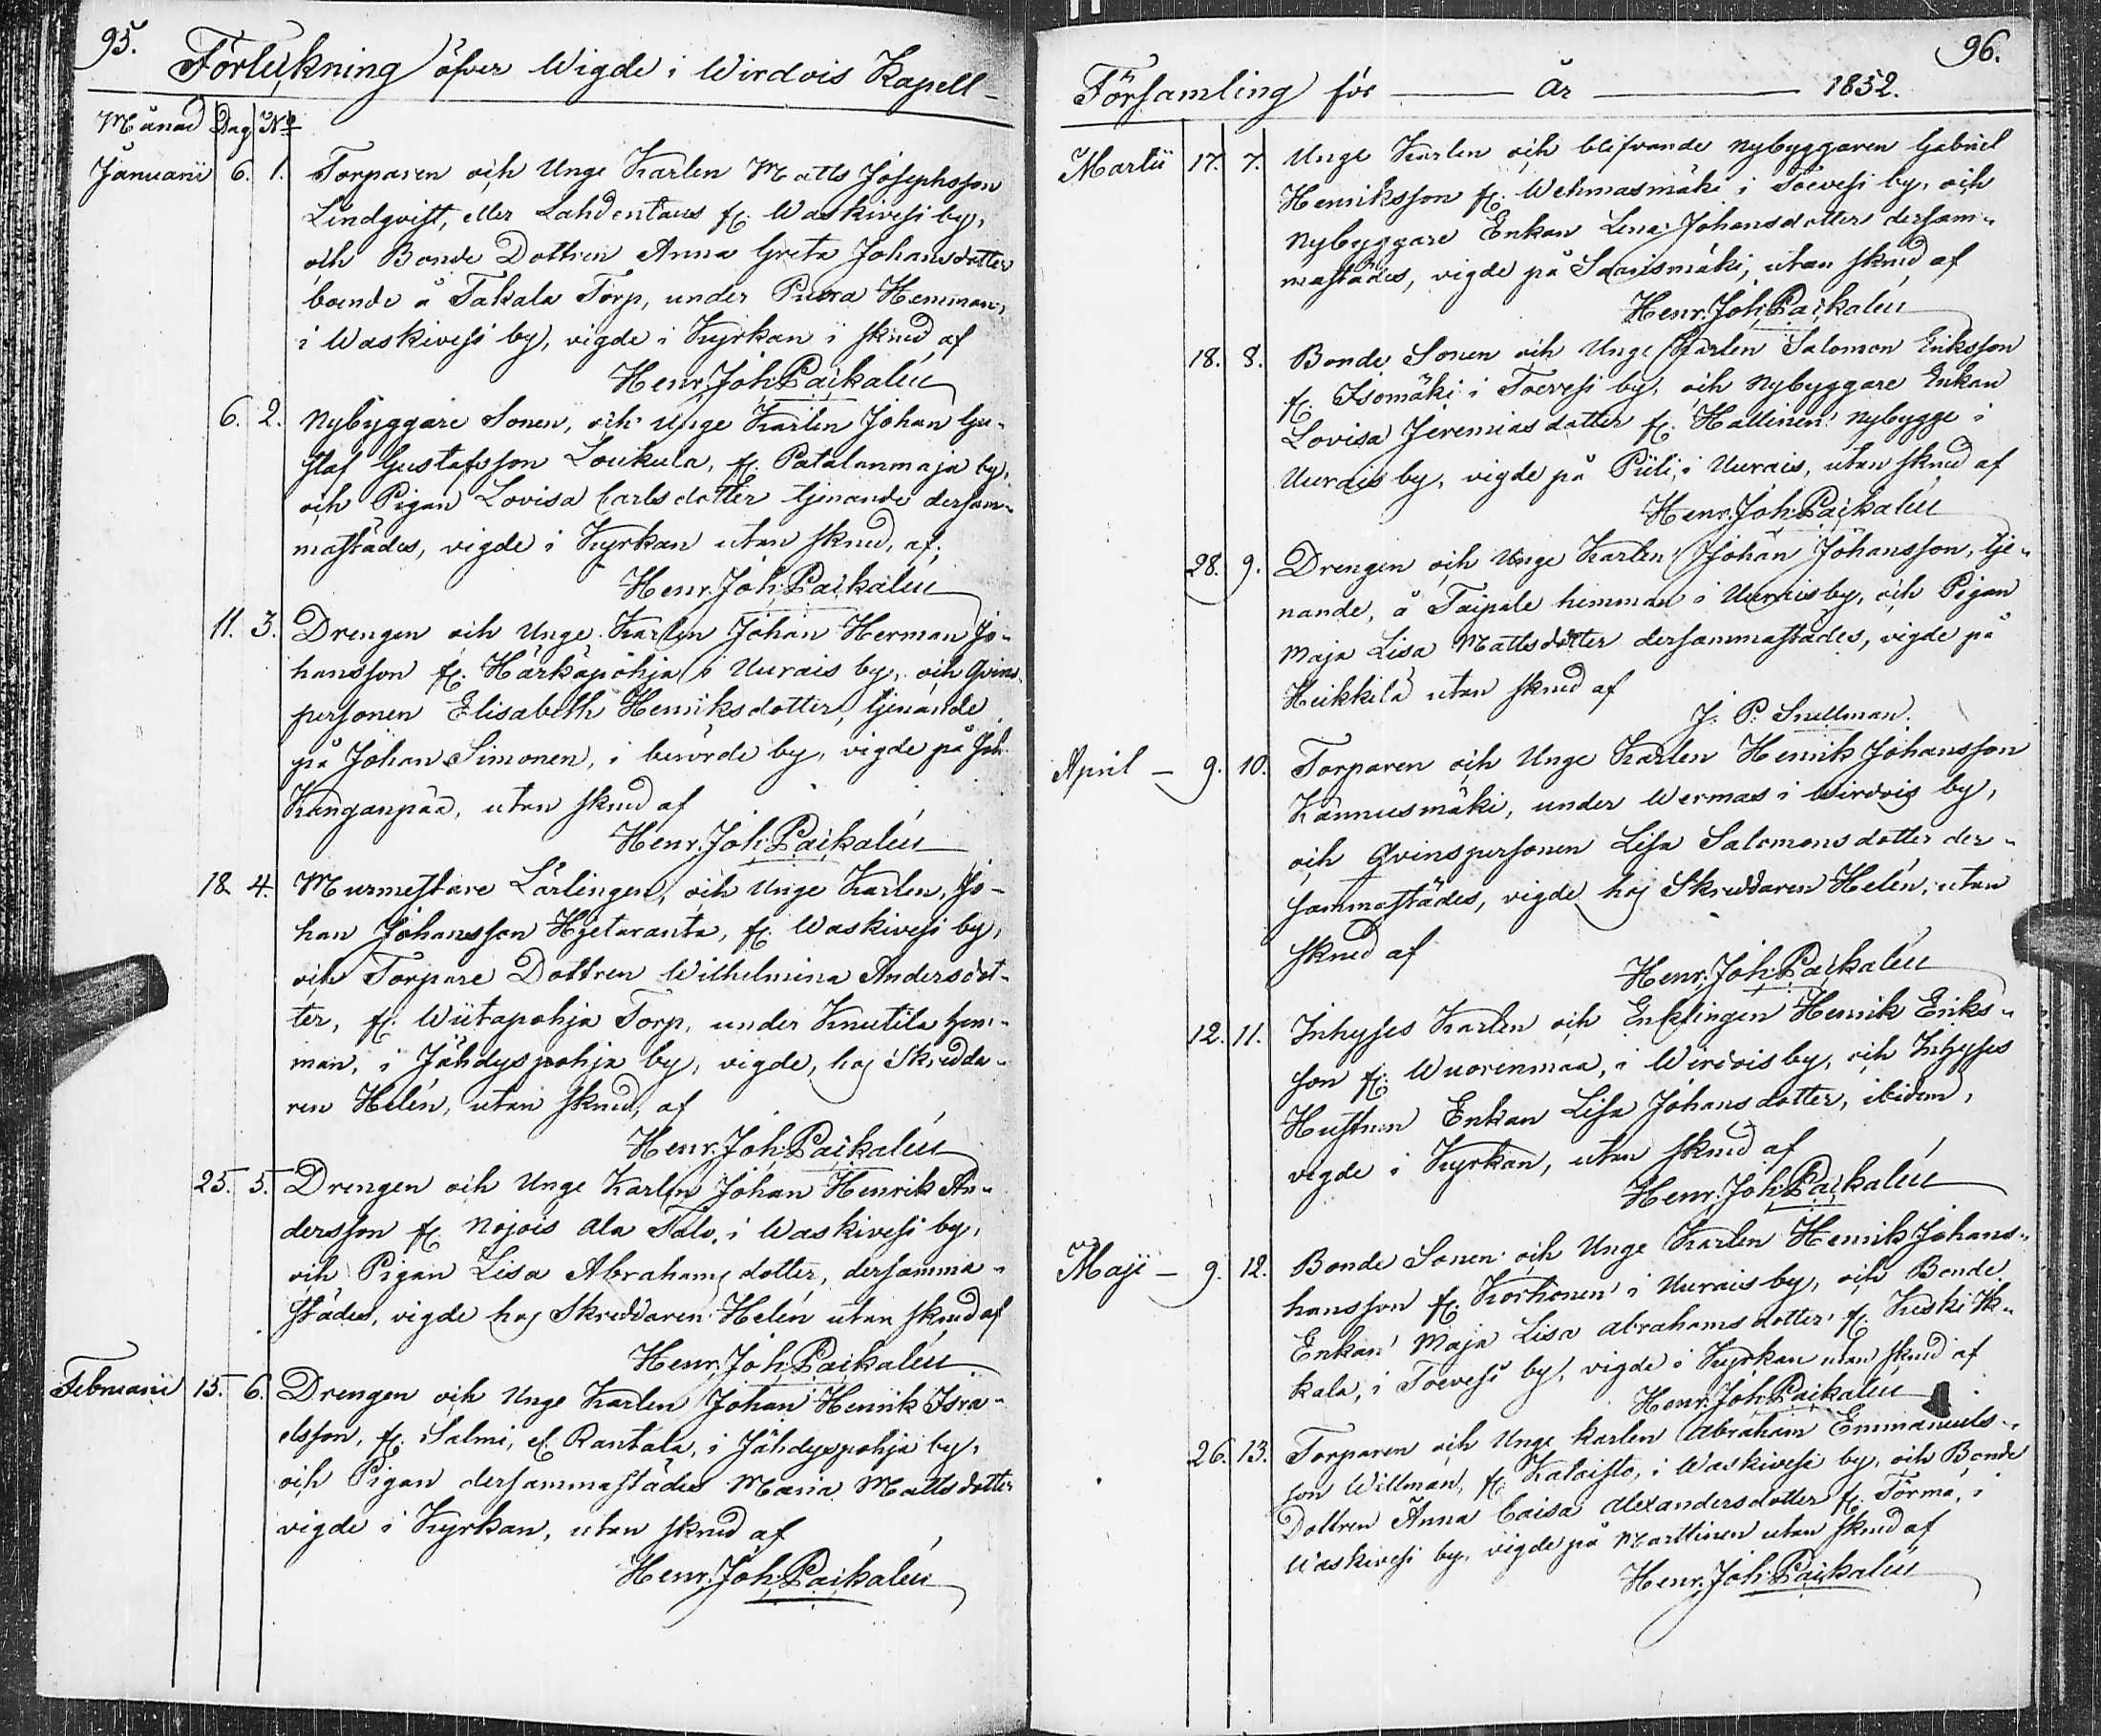 95.
Förteckning öfver Wigde i Wirdois Kapell-
Månad Dag No
Januarii 6. 1. Torparen och Unge Karlen Matts Josephsson
Lindqvist, eller Lahdentaus fr. Waskivesi by,
och Bonde Dottren Anna Greta Johansdotter
boende å Takala Torp, under Puora Hemman,
i Waskivesi by, vigde i Kyrkan i skrud af
Henr. Joh. Paikalén
6. 2. Nybyggare Sonen, och Unge Karlen Johan Gu-
staf Gustafsson Loukula, fr. Patalanmaja by,
och Pigan Lovisa Carlsdotter tjenande dersam-
mastädes, vigde i Kyrkan utan skrud, af,
Henr. Joh. Paikalén
11. 3. Drengen och Unge Karlen Johan Herman Jo-
hansson fr. Härkäpohja i Uurais by, och Qvins-
personen Elisabeth Henriksdotter, tjenande
på Johan Simonen, i berörde by, vigde på Joh.
Kanganpää, utan skrud af
Henr. Joh. Paikalén
18. 4. Murmestare Lärlingen, och Unge Karlen, Jo-
han Johansson Hietaranta, fr. Waskivesi by,
och Torpare Dottren Wilhelmina Andersdot-
ter, fr. Wiitapohja Torp, under Knutila hem-
man, i Jähdyspohja by, vigde, hos Skredda-
ren Helén, utan skrud, af
Henr. Joh. Paikalén
25. 5. Drengen och Unge Karlen Johan Henrik An-
dersson fr. Nojois Ala Talo, i Waskivesi by,
och Pigan Lisa Abrahams dotter, dersamma-
städes, vigde hos Skreddaren Helén utan skrud af
Henr. Joh. Paikalén
Februarii 15. 6. Drengen och Unge Karlen Johan Henrik Isra-
elsson, fr. Salmi, el. Rantala, i Jähdyspohja by,
och Pigan dersammastädes Maria Mattsdotter
vigde i Kyrkan, utan skrud af
Henr. Joh. Paikalén
96.
Församling för År 1852.
Martii 17. 7. Unge Karlen och blifvande Nybyggaren Gabriel
Henriksson fr. Wehmasmäki i Toivesi by, och
Nybyggare Enkan Lena Johansdotter dersam-
mastädes, vigde på Saarismäki, utan skrud af
Henr. Joh. Paikalén
18. 8. Bonde Sonen och Unge Karlen Salomon Eriksson
fr. Isomäki i Toivesi by, och Nybyggare Enkan
Lovisa Jeremias dotter fr. Hallinen Nybygge i
Uurais by, vigde på Piili, i Uurais, utan skrud af
Henr. Joh. Paikalén
28. 9. Drengen och Unge Karlen Johan Johansson, tje-
nande, å Taipale hemman i Uurais by, och Pigan
Maja Lisa Mattsdotter dersammastädes, vigde på
Heikkilä utan skrud af
J. P. Snellman.
April - 9. 10. Torparen och Unge Karlen Henrik Johansson
Kännusmäki, under Wermas i Wirdois by,
och Qvinspersonen Lisa Salomonsdotter der-
sammastädes, vigde hos Skreddaren Helén, utan
skrud af
Henr. Joh. Paikalén
12. 11. Inhyses Karlen och Enklingen Henrik Eriks-
son fr. Wuorenmaa, i Wirdois by, och Inhyses
Hustrun Enkan Lisa Johansdotter, ibidem,
vigde i Kyrkan, utan skrud af
Henr. Joh. Paikalén
Maji - 9. 12. Bonde Sonen och Unge Karlen Henrik Johans-
hansson fr. Korhonen i Uurais by, och Bonde
Enkan Maja Lisa Abrahamsdotter fr. Keski Ik-
kala, i Toivesi by, vigde i Kyrkan utan skrud af
Henr. Joh. Paikalén
26. 13. Torparen och Unge Karlen Abraham Emmanuels-
son Willman, fr. Kataisto, i Waskivesi by, och Bonde
Dottren Anna Caisa Alexandersdotter fr. Törmä, i
Waskivesi by, vigde på Marttinen utan skrud af
Henr. Joh. Paikalén